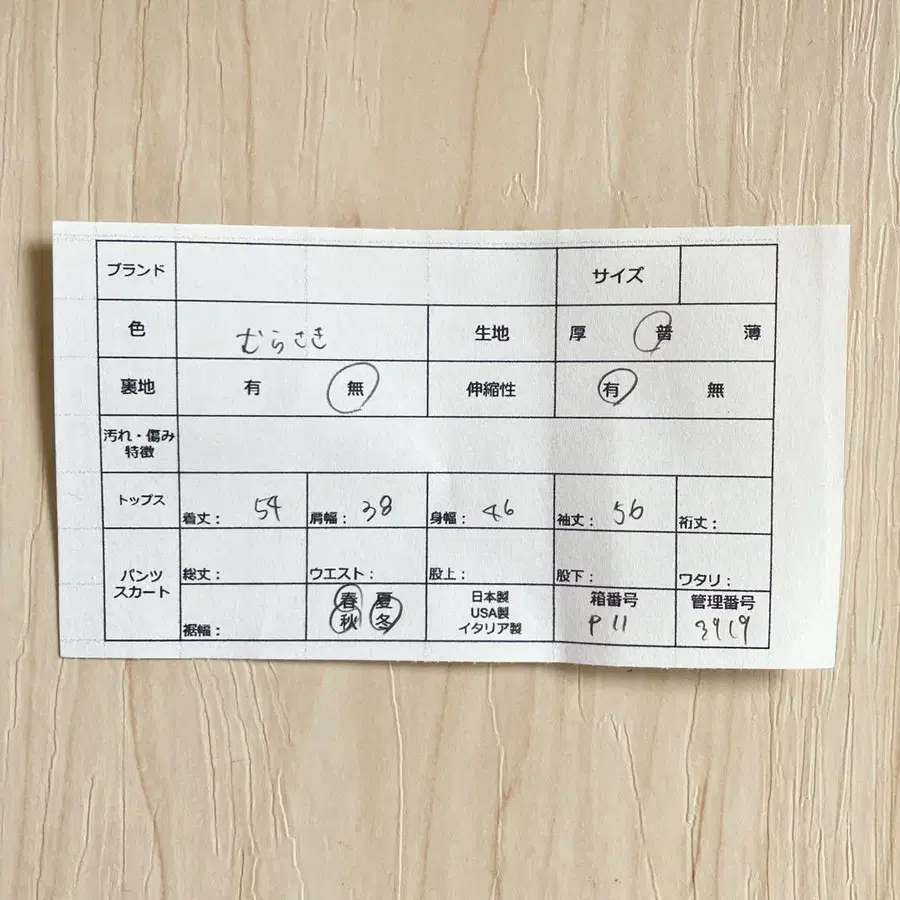 ブランド サイズ
色 むらさき 生地 厚 普 薄
裏地 有 無 伸縮性 有 無
汚れ・傷み
特徴
トップス 着丈： 54 肩幅： 38 身幅： 46 袖丈： 56 裄丈：
パンツ
スカート
総丈： ウエスト： 股上： 股下： ワタリ：
裾幅：
春 夏
秋 冬
日本製
USA製
イタリア製
箱番号
P11
管理番号
3419